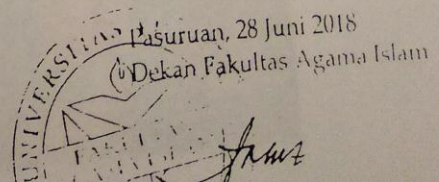 Pasuruan, 28 Juni 2018
Dekan Fakultas Agama Islam
UNIVERSITAS